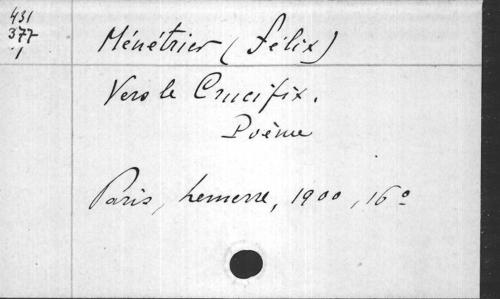 431
377
1
Ménétrier (Félix)
Vers le Crucifix.
Poème
Paris, Lemerre, 1900, 16°